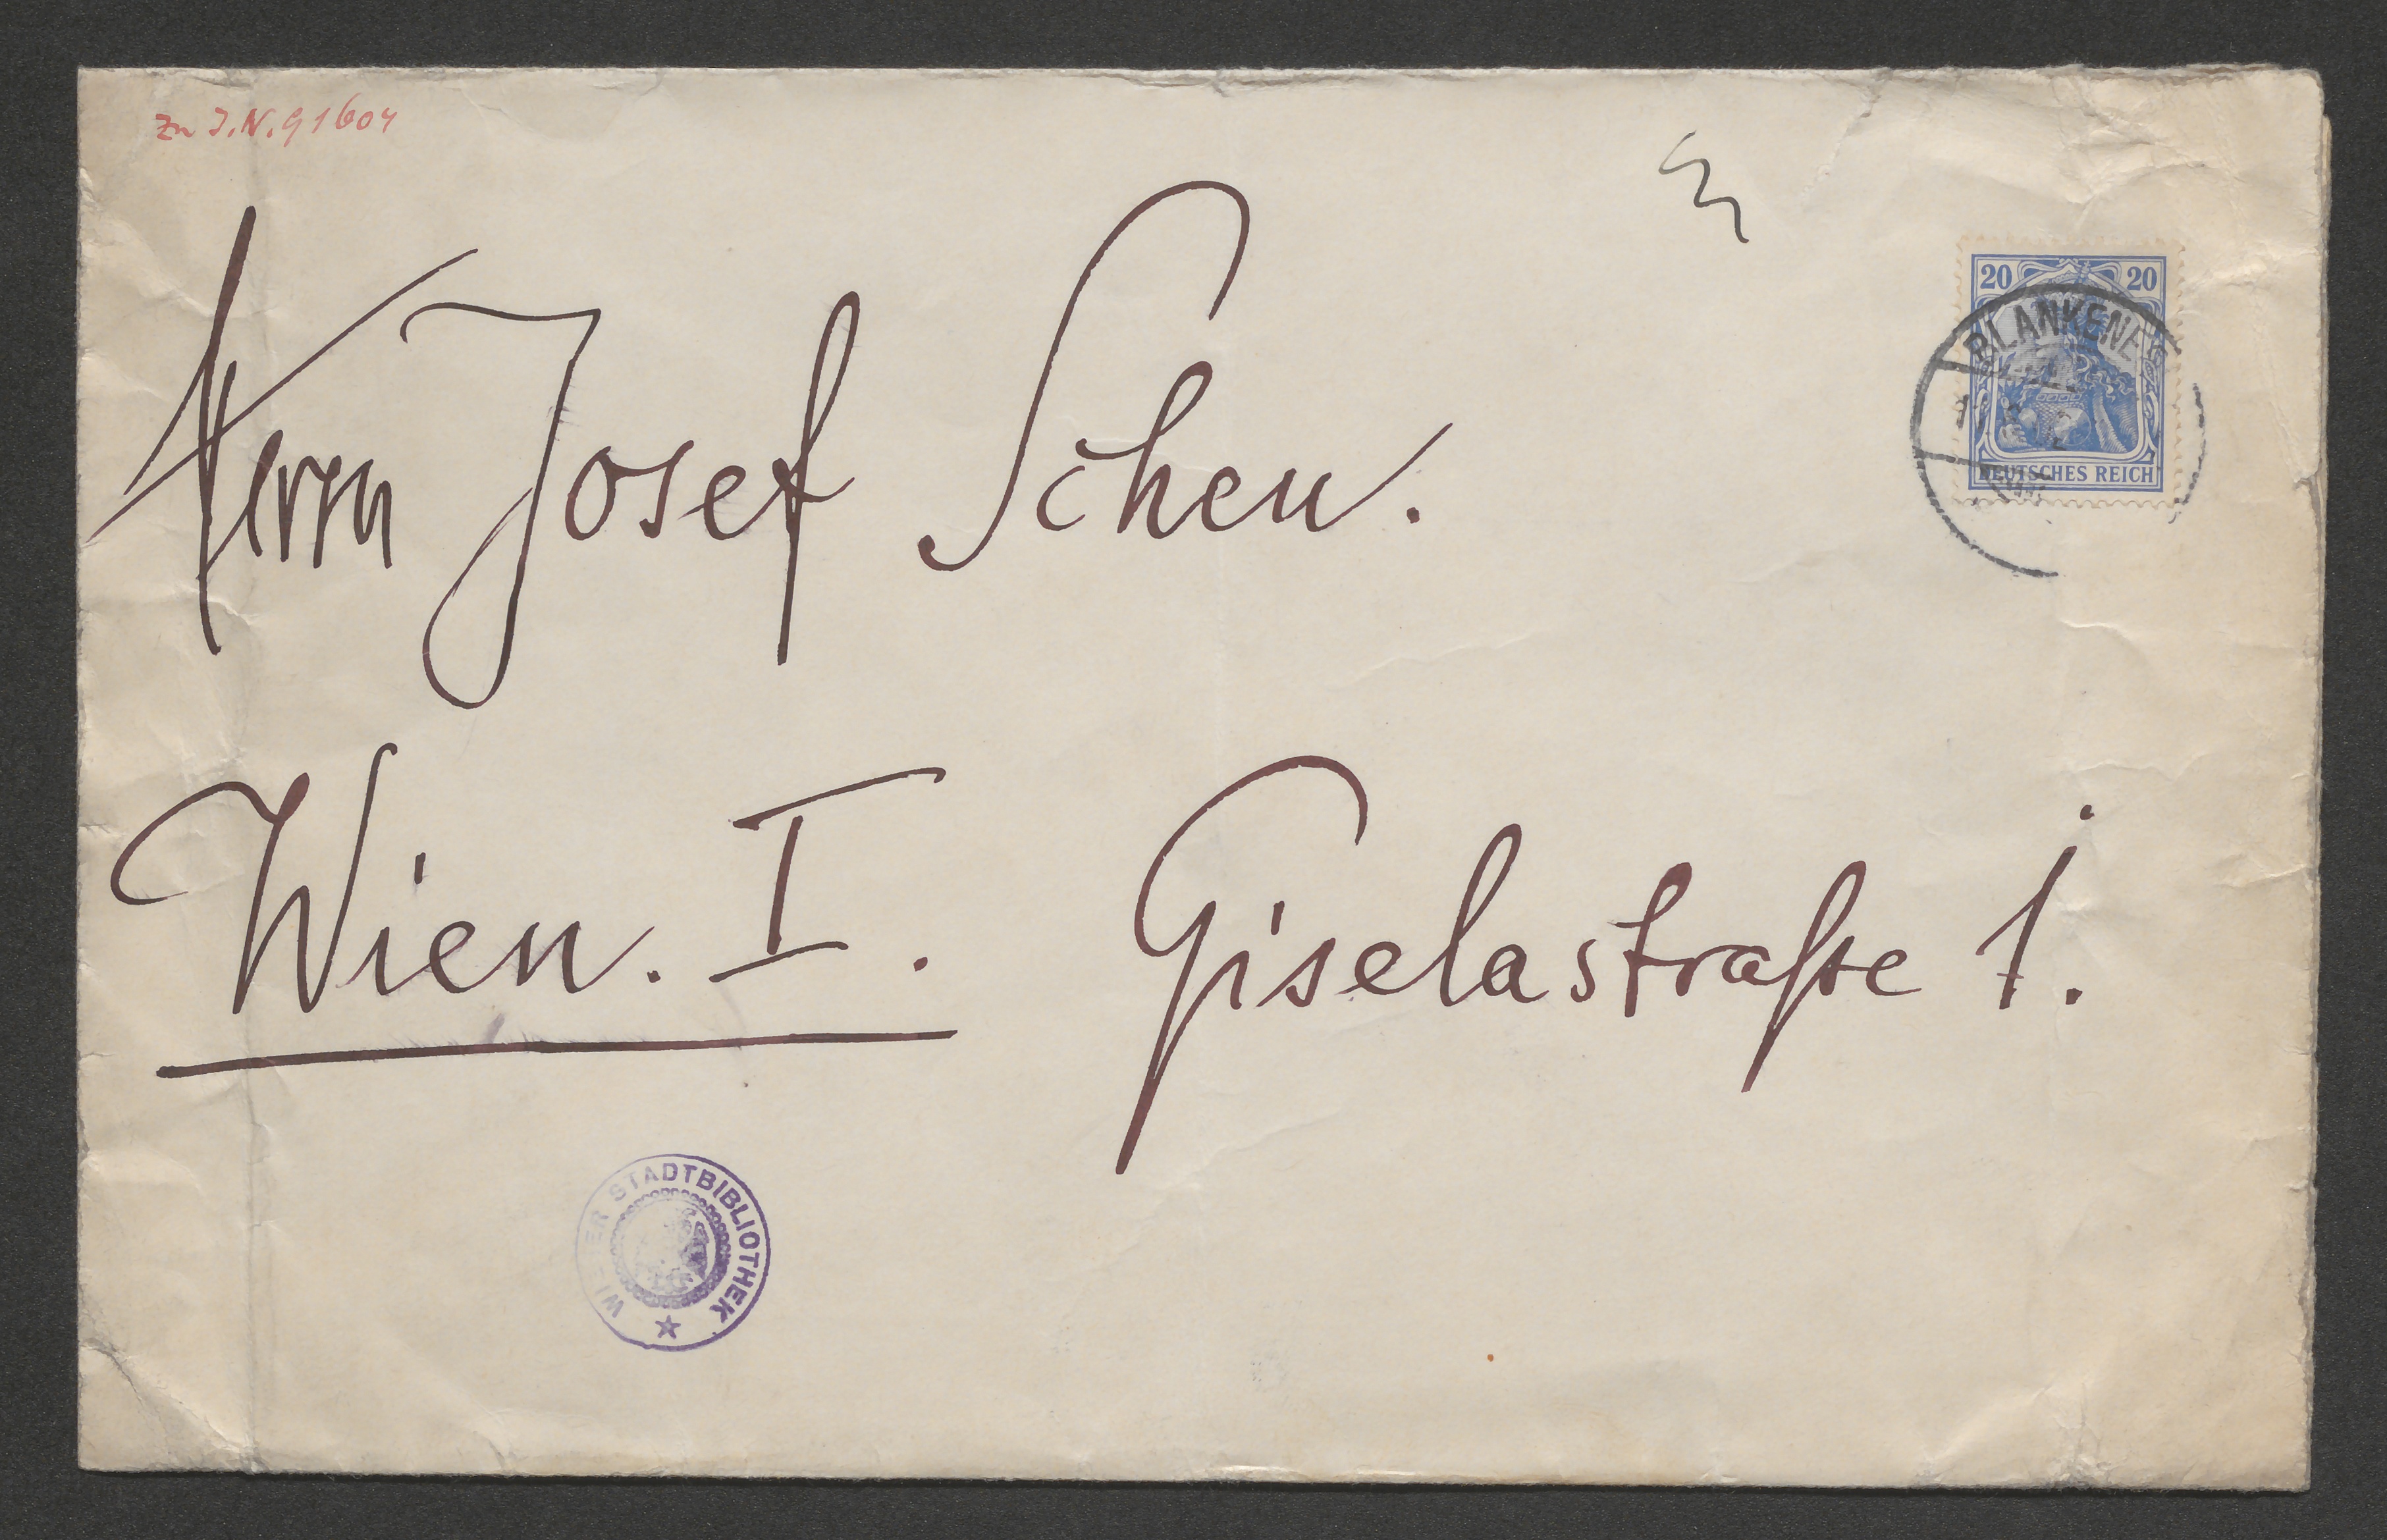 Zu J.N. 91604
20 20
BLANKENE
DEUTSCHES REICH
Herrn Josef Scheu.
Wien. I. Giselastraße 1.
WIENER STADTBIBLIOTHEK